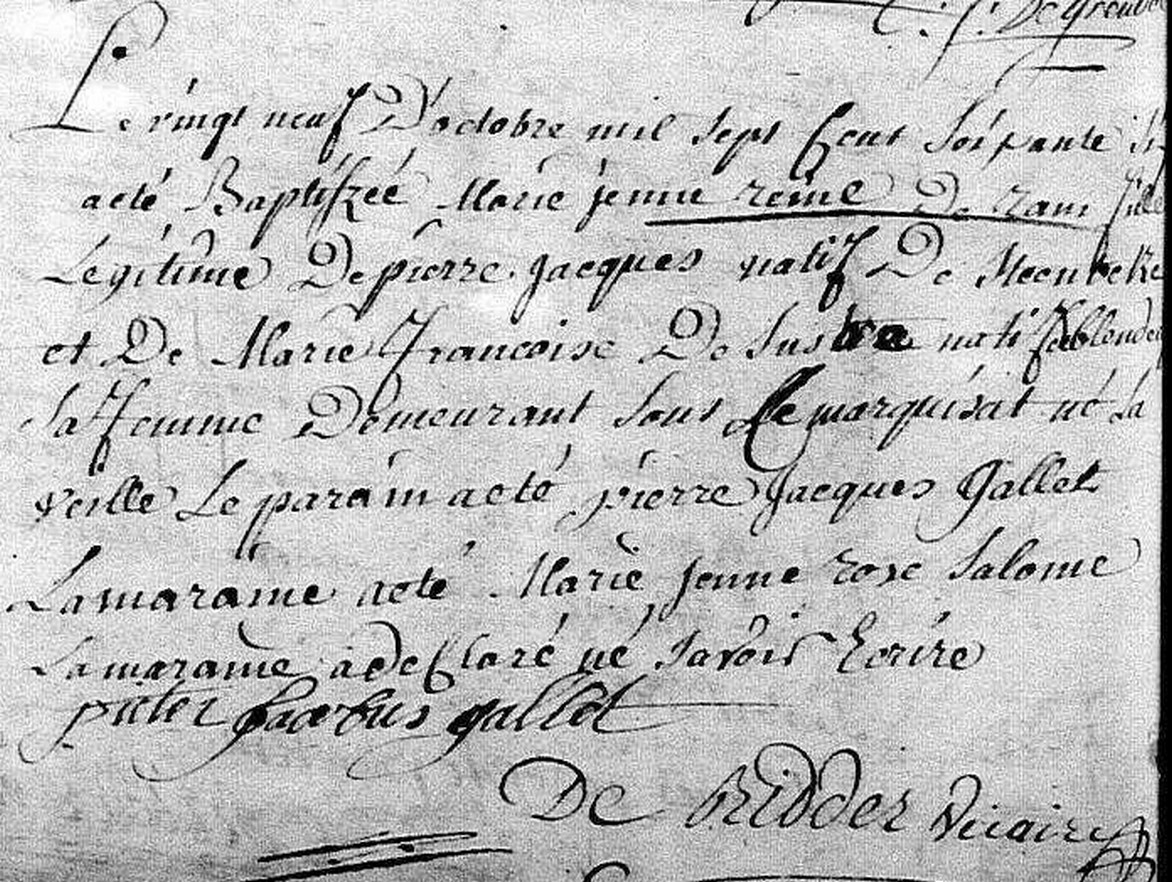 C. J. De Greu
Le vingt neuf D'octobre mil sept Cent Soixante
a eté Baptiszée Marie jenne reine De ram fille
Legitime De pierre jacques natif De Steenbeke
et De Marie Francoise De Sus natif
Sa Femme Demeurant sous Le marquisat né La
veille Le parain a eté pierre Jacques Gallet
La maraine a eté Marie Jenne rose Salome
La maraine a deClaré né Savoir Ecrire
pieter Jacobus gallot
De Ridder Vicaire